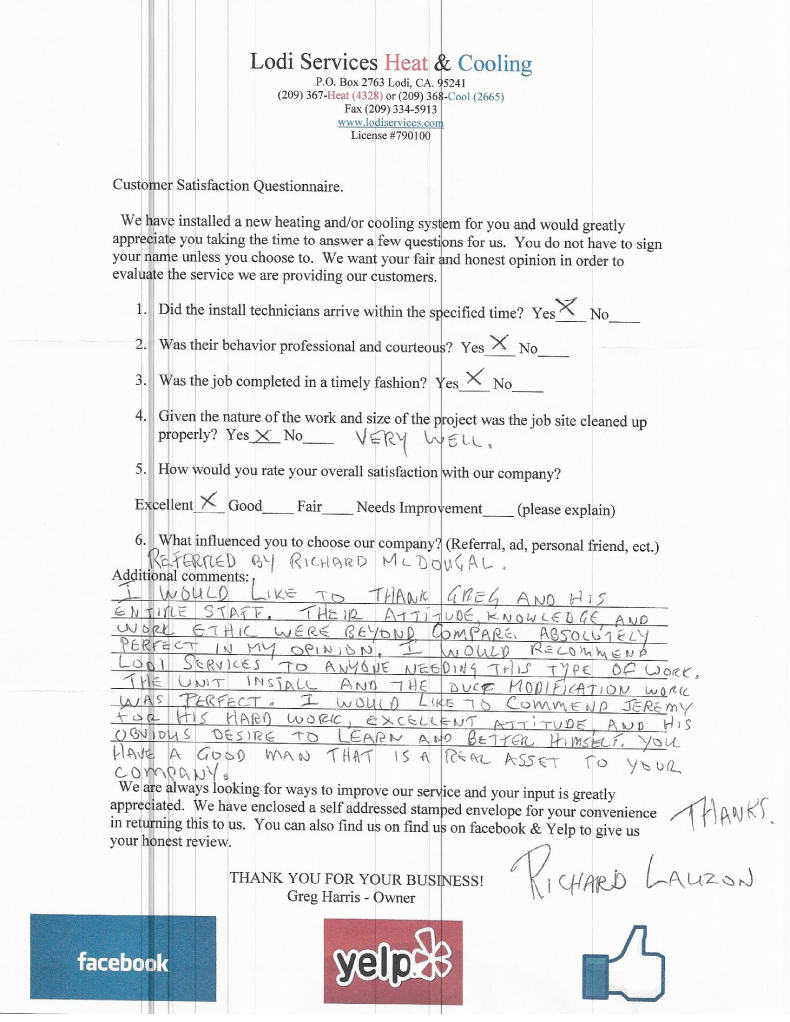 Lodi Services Heat & Cooling
P.O. Box 2763 Lodi, CA. 95241
(209) 367-Heat (4328) or (209) 368-Cool (2665)
Fax (209) 334-5913
www.lodiservices.com
License #790100
Customer Satisfaction Questionnaire.
We have installed a new heating and/or cooling system for you and would greatly
appreciate you taking the time to answer a few questions for us. You do not have to sign
your name unless you choose to. We want your fair and honest opinion in order to
evaluate the service we are providing our customers.
1. Did the install technicians arrive within the specified time? Yes X No____
2. Was their behavior professional and courteous? Yes X No____
3. Was the job completed in a timely fashion? Yes X No____
4. Given the nature of the work and size of the project was the job site cleaned up
properly? Yes X No____ VERY WELL.
5. How would you rate your overall satisfaction with our company?
Excellent X Good____ Fair____ Needs Improvement____ (please explain)
6. What influenced you to choose our company? (Referral, ad, personal friend, ect.)
REFERRED BY RICHARD MCDOUGAL.
Additional comments:
I WOULD LIKE TO THANK GREG AND HIS
ENTIRE STAFF. THEIR ATTITUDE, KNOWLEDGE, AND
WORK ETHIC WERE BEYOND COMPARE. ABSOLUTELY
PERFECT IN MY OPINION. I WOULD RECOMMEND
LODI SERVICES TO ANYONE NEEDING THIS TYPE OF WORK.
THE UNIT INSTALL AND THE DUCT MODIFICATION WORK
WAS PERFECT. I WOULD LIKE TO COMMEND JEREMY
FOR HIS HARD WORK, EXCELLENT ATTITUDE, AND HIS
OBVIOUS DESIRE TO LEARN AND BETTER HIMSELF. YOU
HAVE A GOOD MAN THAT IS A REAL ASSET TO YOUR
COMPANY.
We are always looking for ways to improve our service and your input is greatly
appreciated. We have enclosed a self addressed stamped envelope for your convenience
in returning this to us. You can also find us on find us on facebook & Yelp to give us
your honest review.
THANKS.
RICHARD LAUZON
THANK YOU FOR YOUR BUSINESS!
Greg Harris - Owner
facebook
yelp